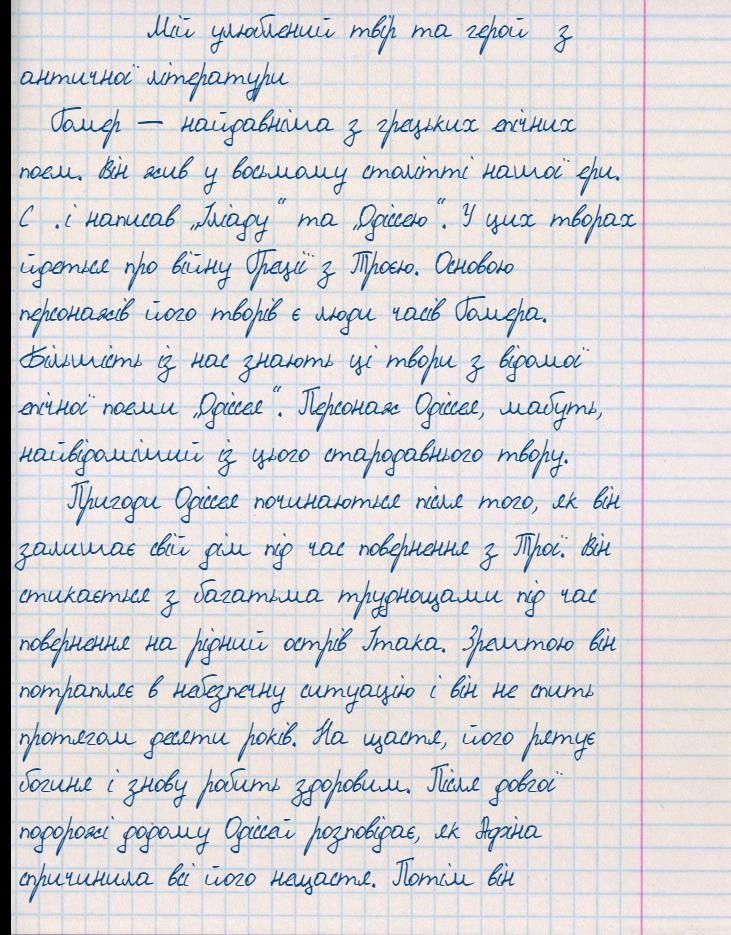 Мій улюблений твір та герой з
античної літератури
Гомер — найдавніша з грецьких епічних
поем. Він жив у восьмому столітті нашої ери.
С . і написав „Іліаду“ та „Одіссею“. У цих творах
йдеться про війну Греції з Троєю. Основою
персонажів його творів є люди часів Гомера.
Більшість із нас знають ці твори з відомої
епічної поеми „Одіссея“. Персонаж Одіссея, мабуть,
найвідоміший із цього стародавнього твору.
Пригоди Одіссея починаються після того, як він
залишає свій дім під час повернення з Трої. Він
стикається з багатьма труднощами під час
повернення на рідний острів Ітака. Зрештою він
потрапляє в небезпечну ситуацію і він не спить
протягом десяти років. На щастя, його рятує
богиня і знову робить здоровим. Після довгої
подорожі додому Одіссей розповідає, як Афіна
спричинила всі його нещастя. Потім він